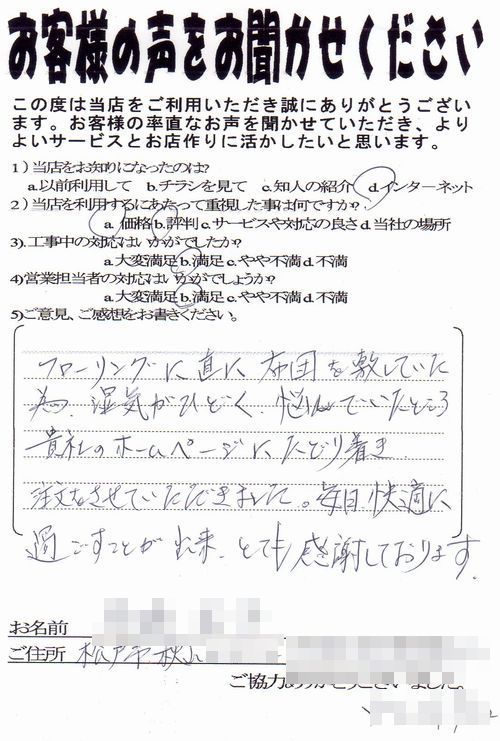 お客様の声をお聞かせください
この度は当店をご利用いただき誠にありがとうござい
ます。お客様の率直なお声を聞かせていただき、より
よいサービスとお店作りに活かしたいと思います。
1）当店をお知りになったのは?
a.以前利用して b.チラシを見て c.知人の紹介 d.インターネット
2）当店を利用するにあたって重視した事は何ですか?
a.価格 b.評判 c.サービスや対応の良さ d 当社の場所
3).工事中の対応はいかがでしたか?
a.大変満足 b.満足 c.やや不満 d.不満
4)営業担当者の対応はいかがでしょうか?
a.大変満足 b.満足 c.やや不満 d.不満
5)ご意見、ご感想をお書きください。
フローリングに直に布団を敷していた
為、湿気がひどく、悩んでいたところ
貴社のホームページにたどり着き
注文をさせていただきました。毎日快適に
過ごすことが出来、とても感謝しております。
お名前
ご住所 松戸市秋山
ご協力ありがとうございました。